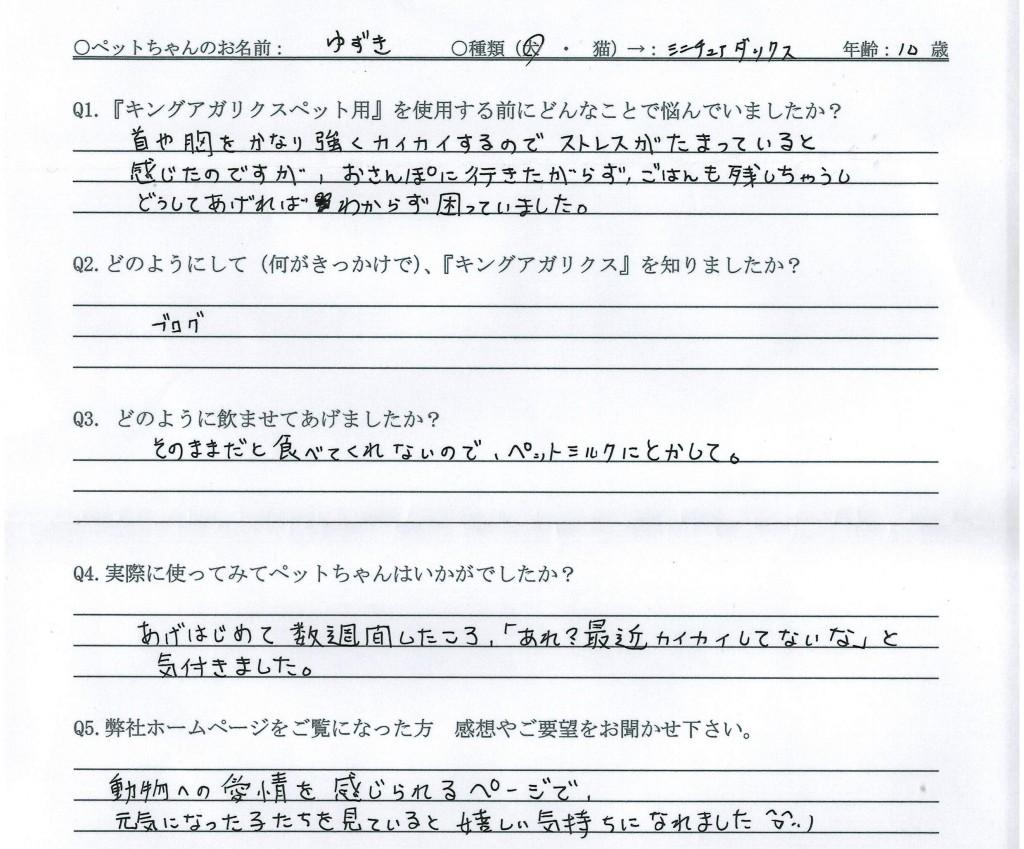 ○ペットちゃんのお名前： ゆずき ○種類（犬 ・ 猫）→：ミニチュアダックス 年齢：10 歳
Q1.『キングアガリクスペット用』を使用する前にどんなことで悩んでいましたか？
首や胸をかなり強くカイカイするのでストレスがたまっていると
感じたのですが、おさんぽに行きたがらず、ごはんも残しちゃうし
どうしてあげればわからず困っていました。
Q2.どのようにして（何がきっかけで）、『キングアガリクス』を知りましたか？
ブログ
Q3. どのように飲ませてあげましたか？
そのままだと食べてくれないので、ペットミルクにとかして。
Q4.実際に使ってみてペットちゃんはいかがでしたか？
あげはじめて数週間したころ、「あれ？最近カイカイしてないな」と
気付きました。
Q5.弊社ホームページをご覧になった方 感想やご要望をお聞かせ下さい。
動物への愛情を感じられるページで、
元気になった子たちを見ていると嬉しい気持ちになれました